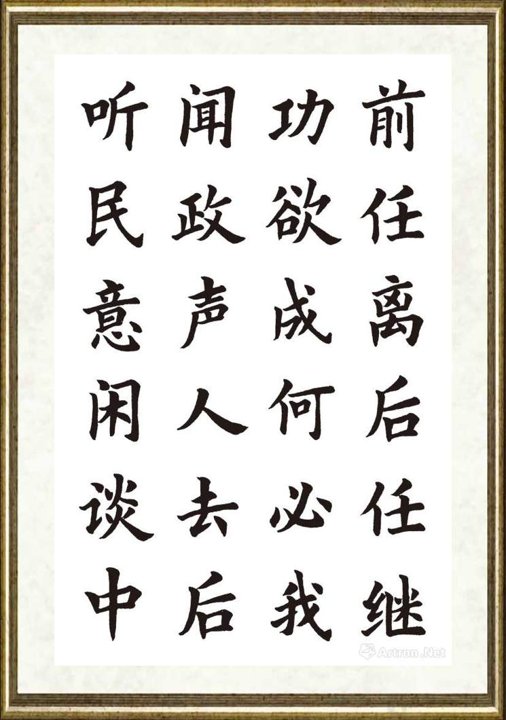 前任离后任继
功欲成何必我
闻政声人去后
听民意闲谈中
Artron.Net